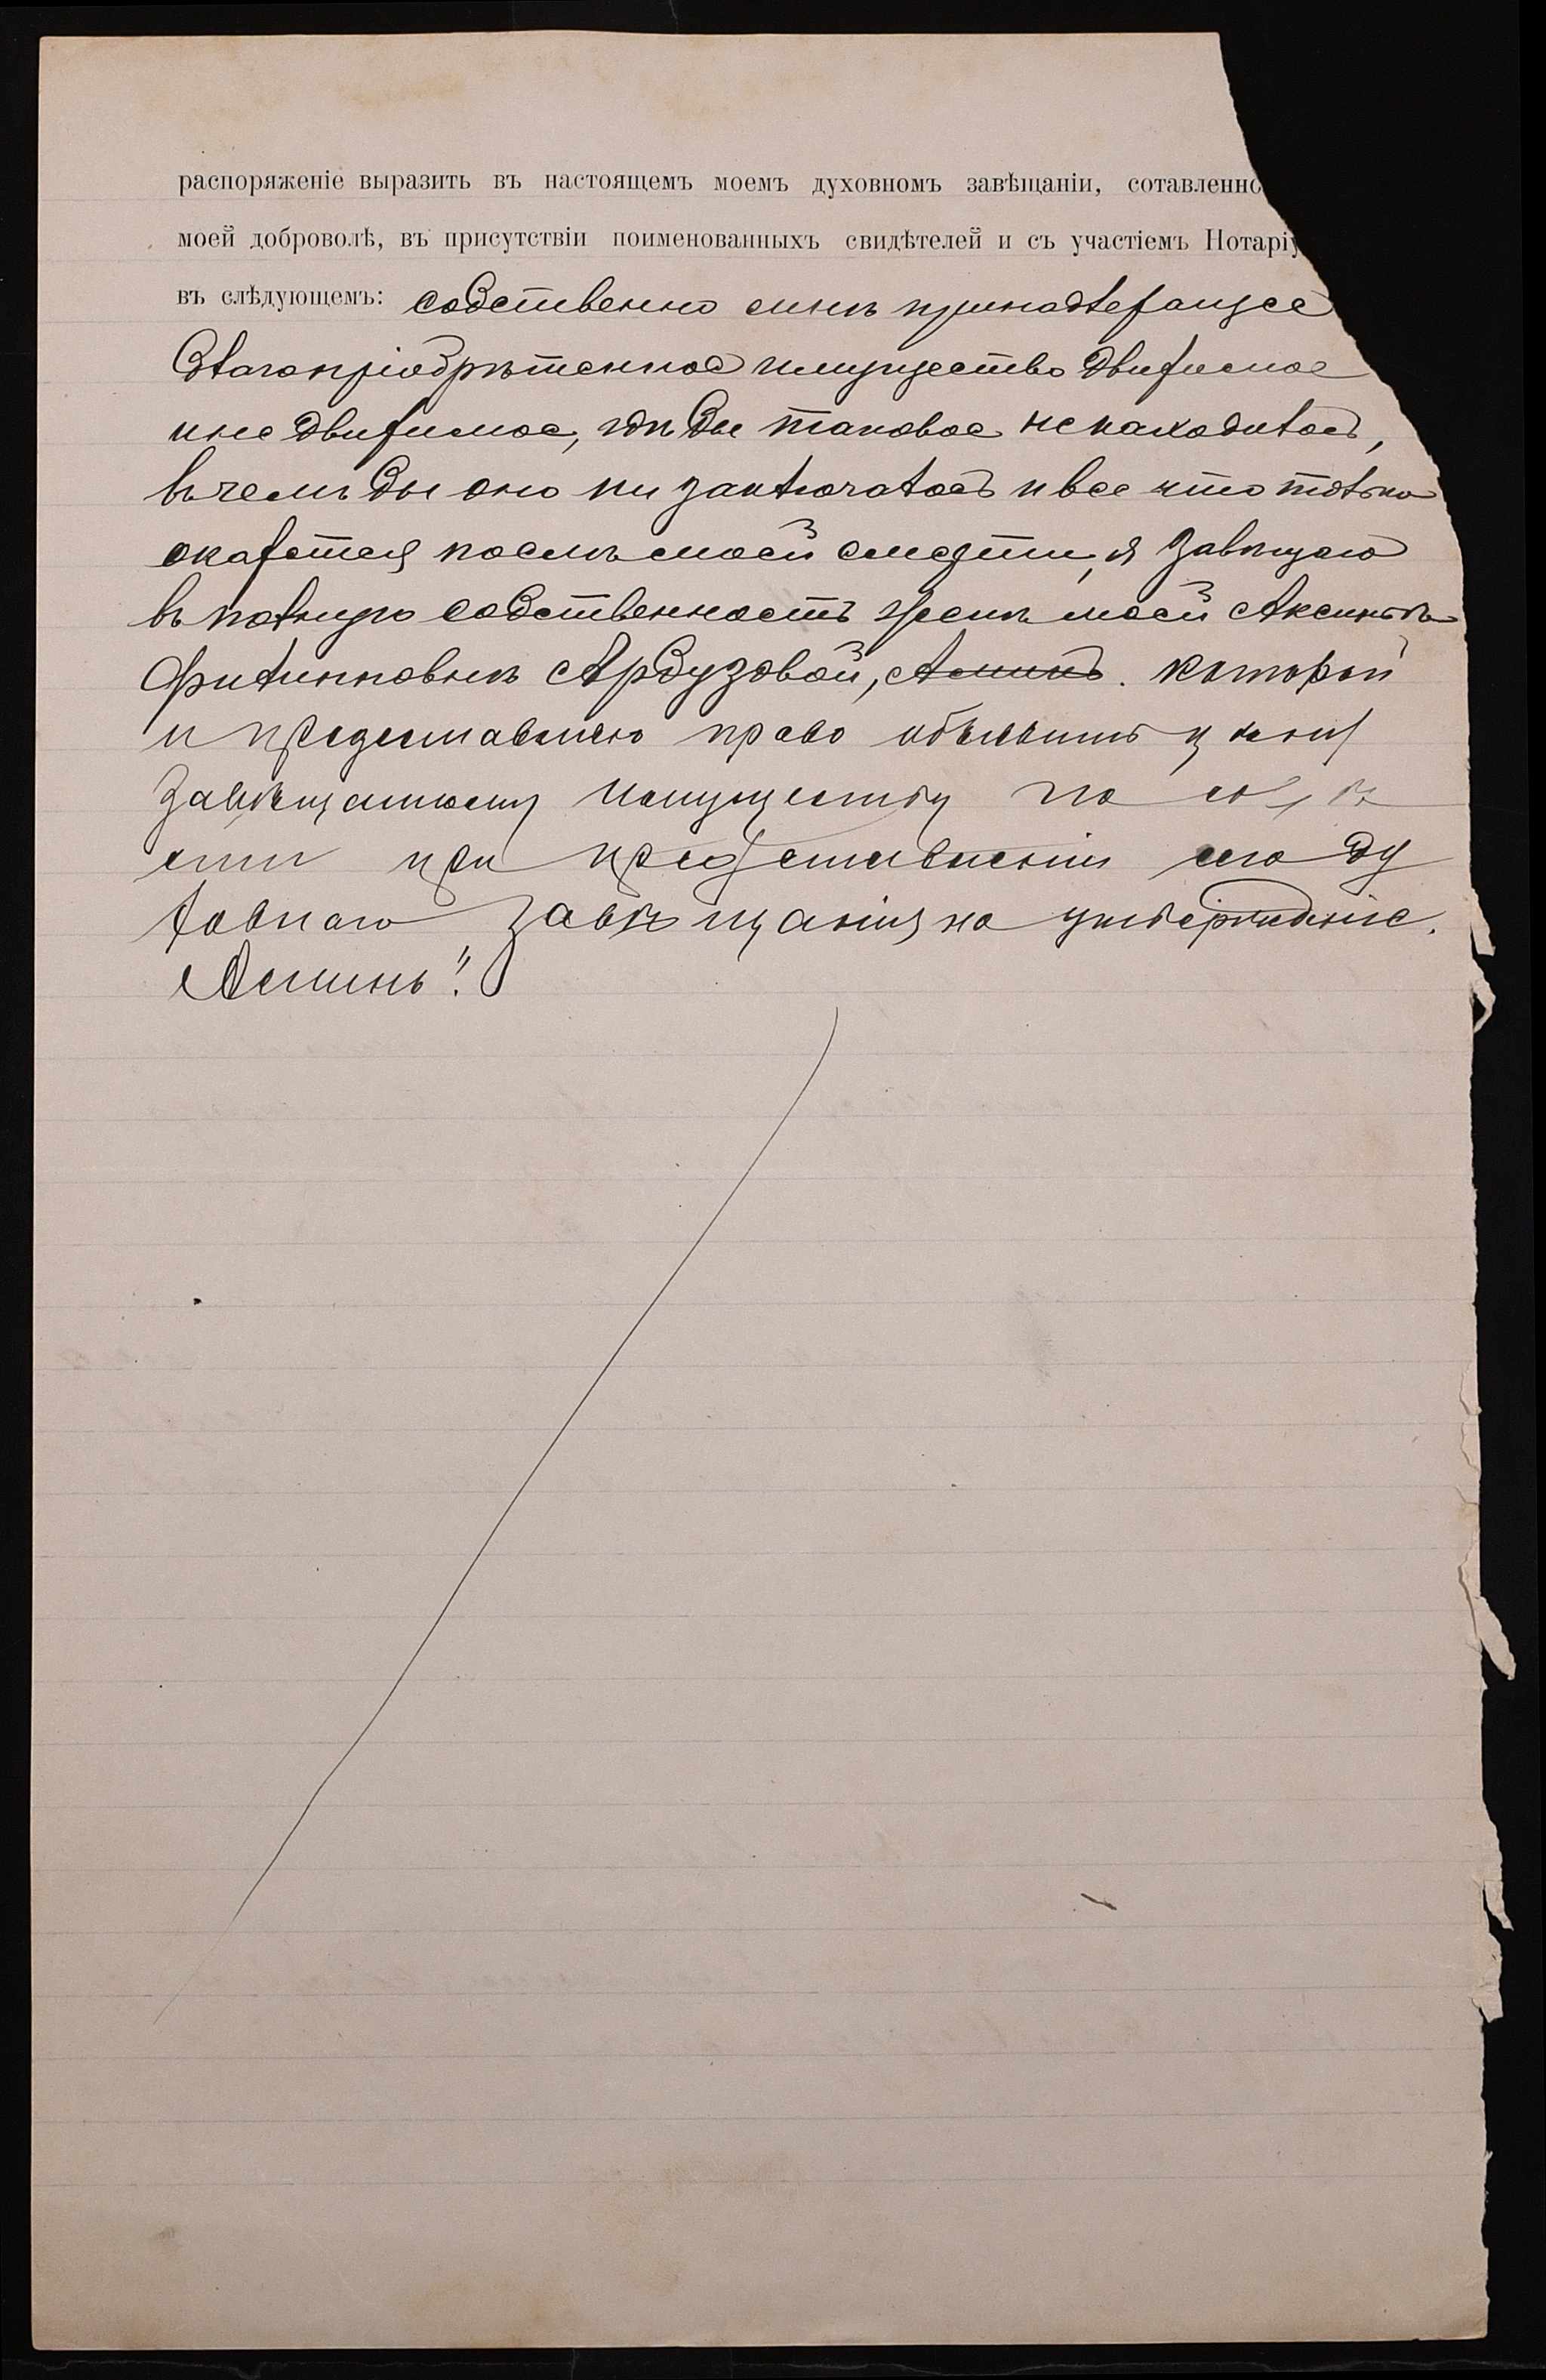 распоряженіе выразить въ настоящемъ моемъ духовномъ завѣщаніи, сотавленно
моей доброволѣ, въ присутствіи поименованныхъ свидѣтелей и съ участіемъ Нотаріу
въ слѣдующемъ: собственно мнѣ принадлежащее
благопріобрѣтенное имущество движимое
и не движимое, гдѣ бы таковое не находилось,
въ чемъ бы оно ни заключалось и все что только
окажется послѣ моей смерти, я завѣщаю
въ полную собственность женѣ моей Аксиньѣ
Филипповнѣ Арбузовой, Аминь. которой
и предоставляю право объявить цѣну
завѣщанному имуществу по
сти при представленіи сего ду
ховнаго завѣщанія на утвержденіе.
Аминь!